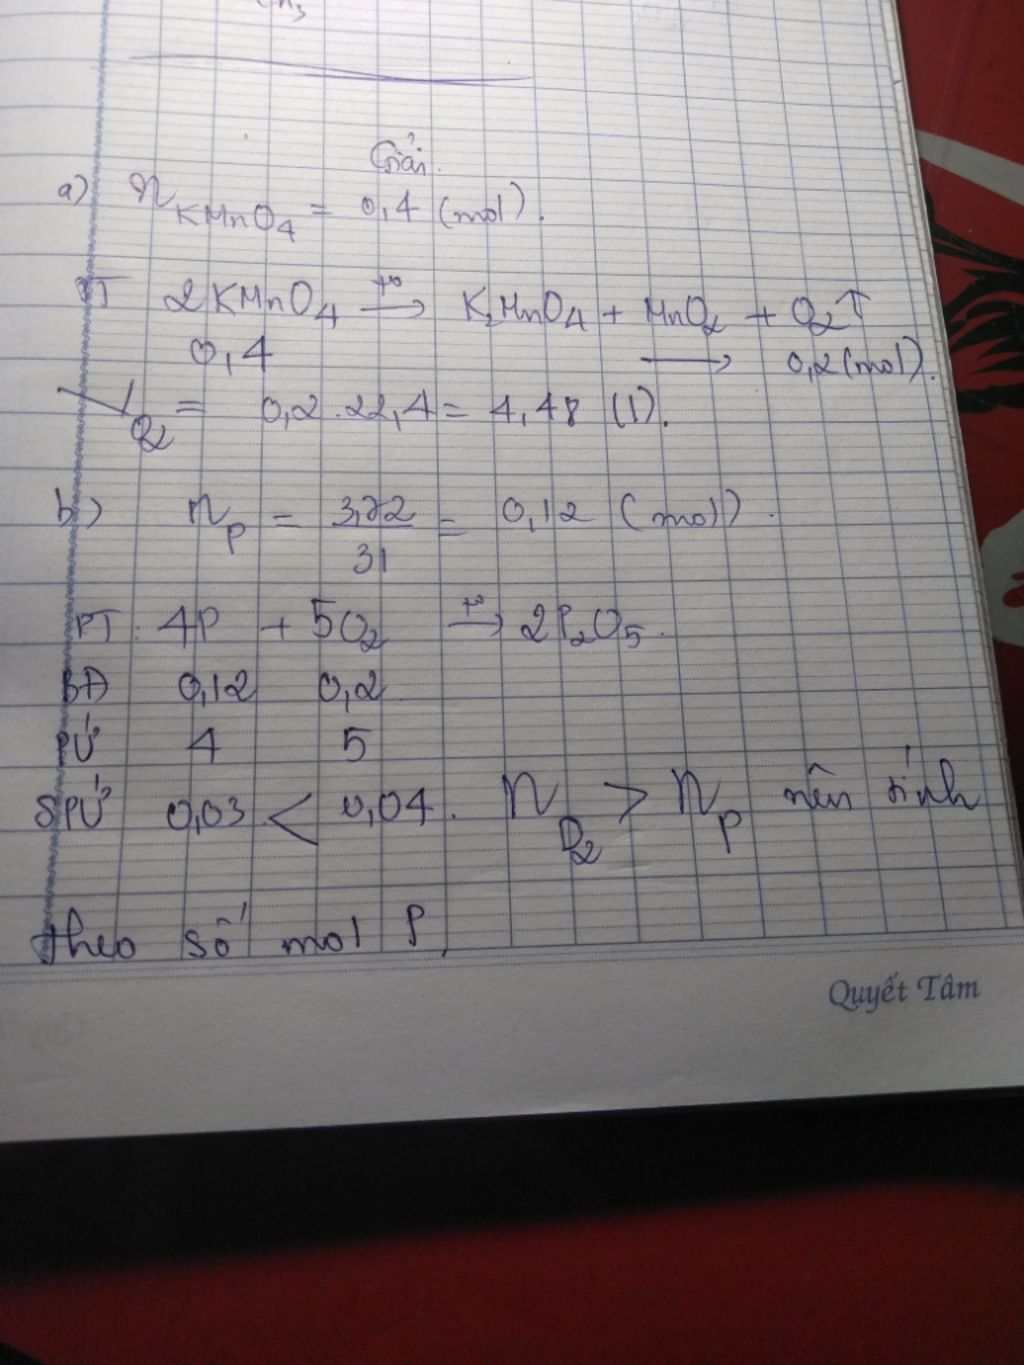 CH3
Giải.
a) nKMnO4 = 0,4 (mol).
PT 2KMnO4 –t°→ K2MnO4 + MnO2 + O2↑
0,4 → 0,2 (mol).
VO2 = 0,2.22,4 = 4,48 (l).
b) nP = 3,72/31 = 0,12 (mol).
PT: 4P + 5O2 –t°→ 2P2O5.
BĐ 0,12 0,2
PỨ 4 5
SPỨ 0,03 < 0,04. nO2 > nP nên tính
theo số mol P.
Quyết Tâm